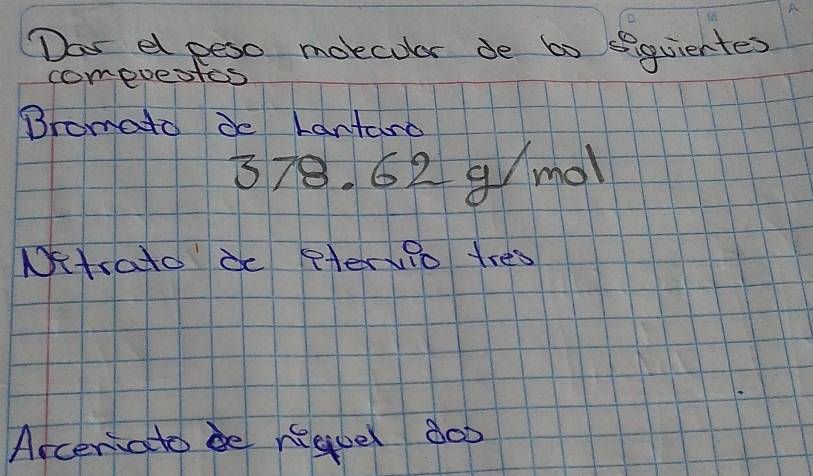 Dar el peso molecular de los siguientes
compuestos
Bromato de Lantano
378.62 g/mol
Nitrato de itervio tres
Arceniato de niquel dos